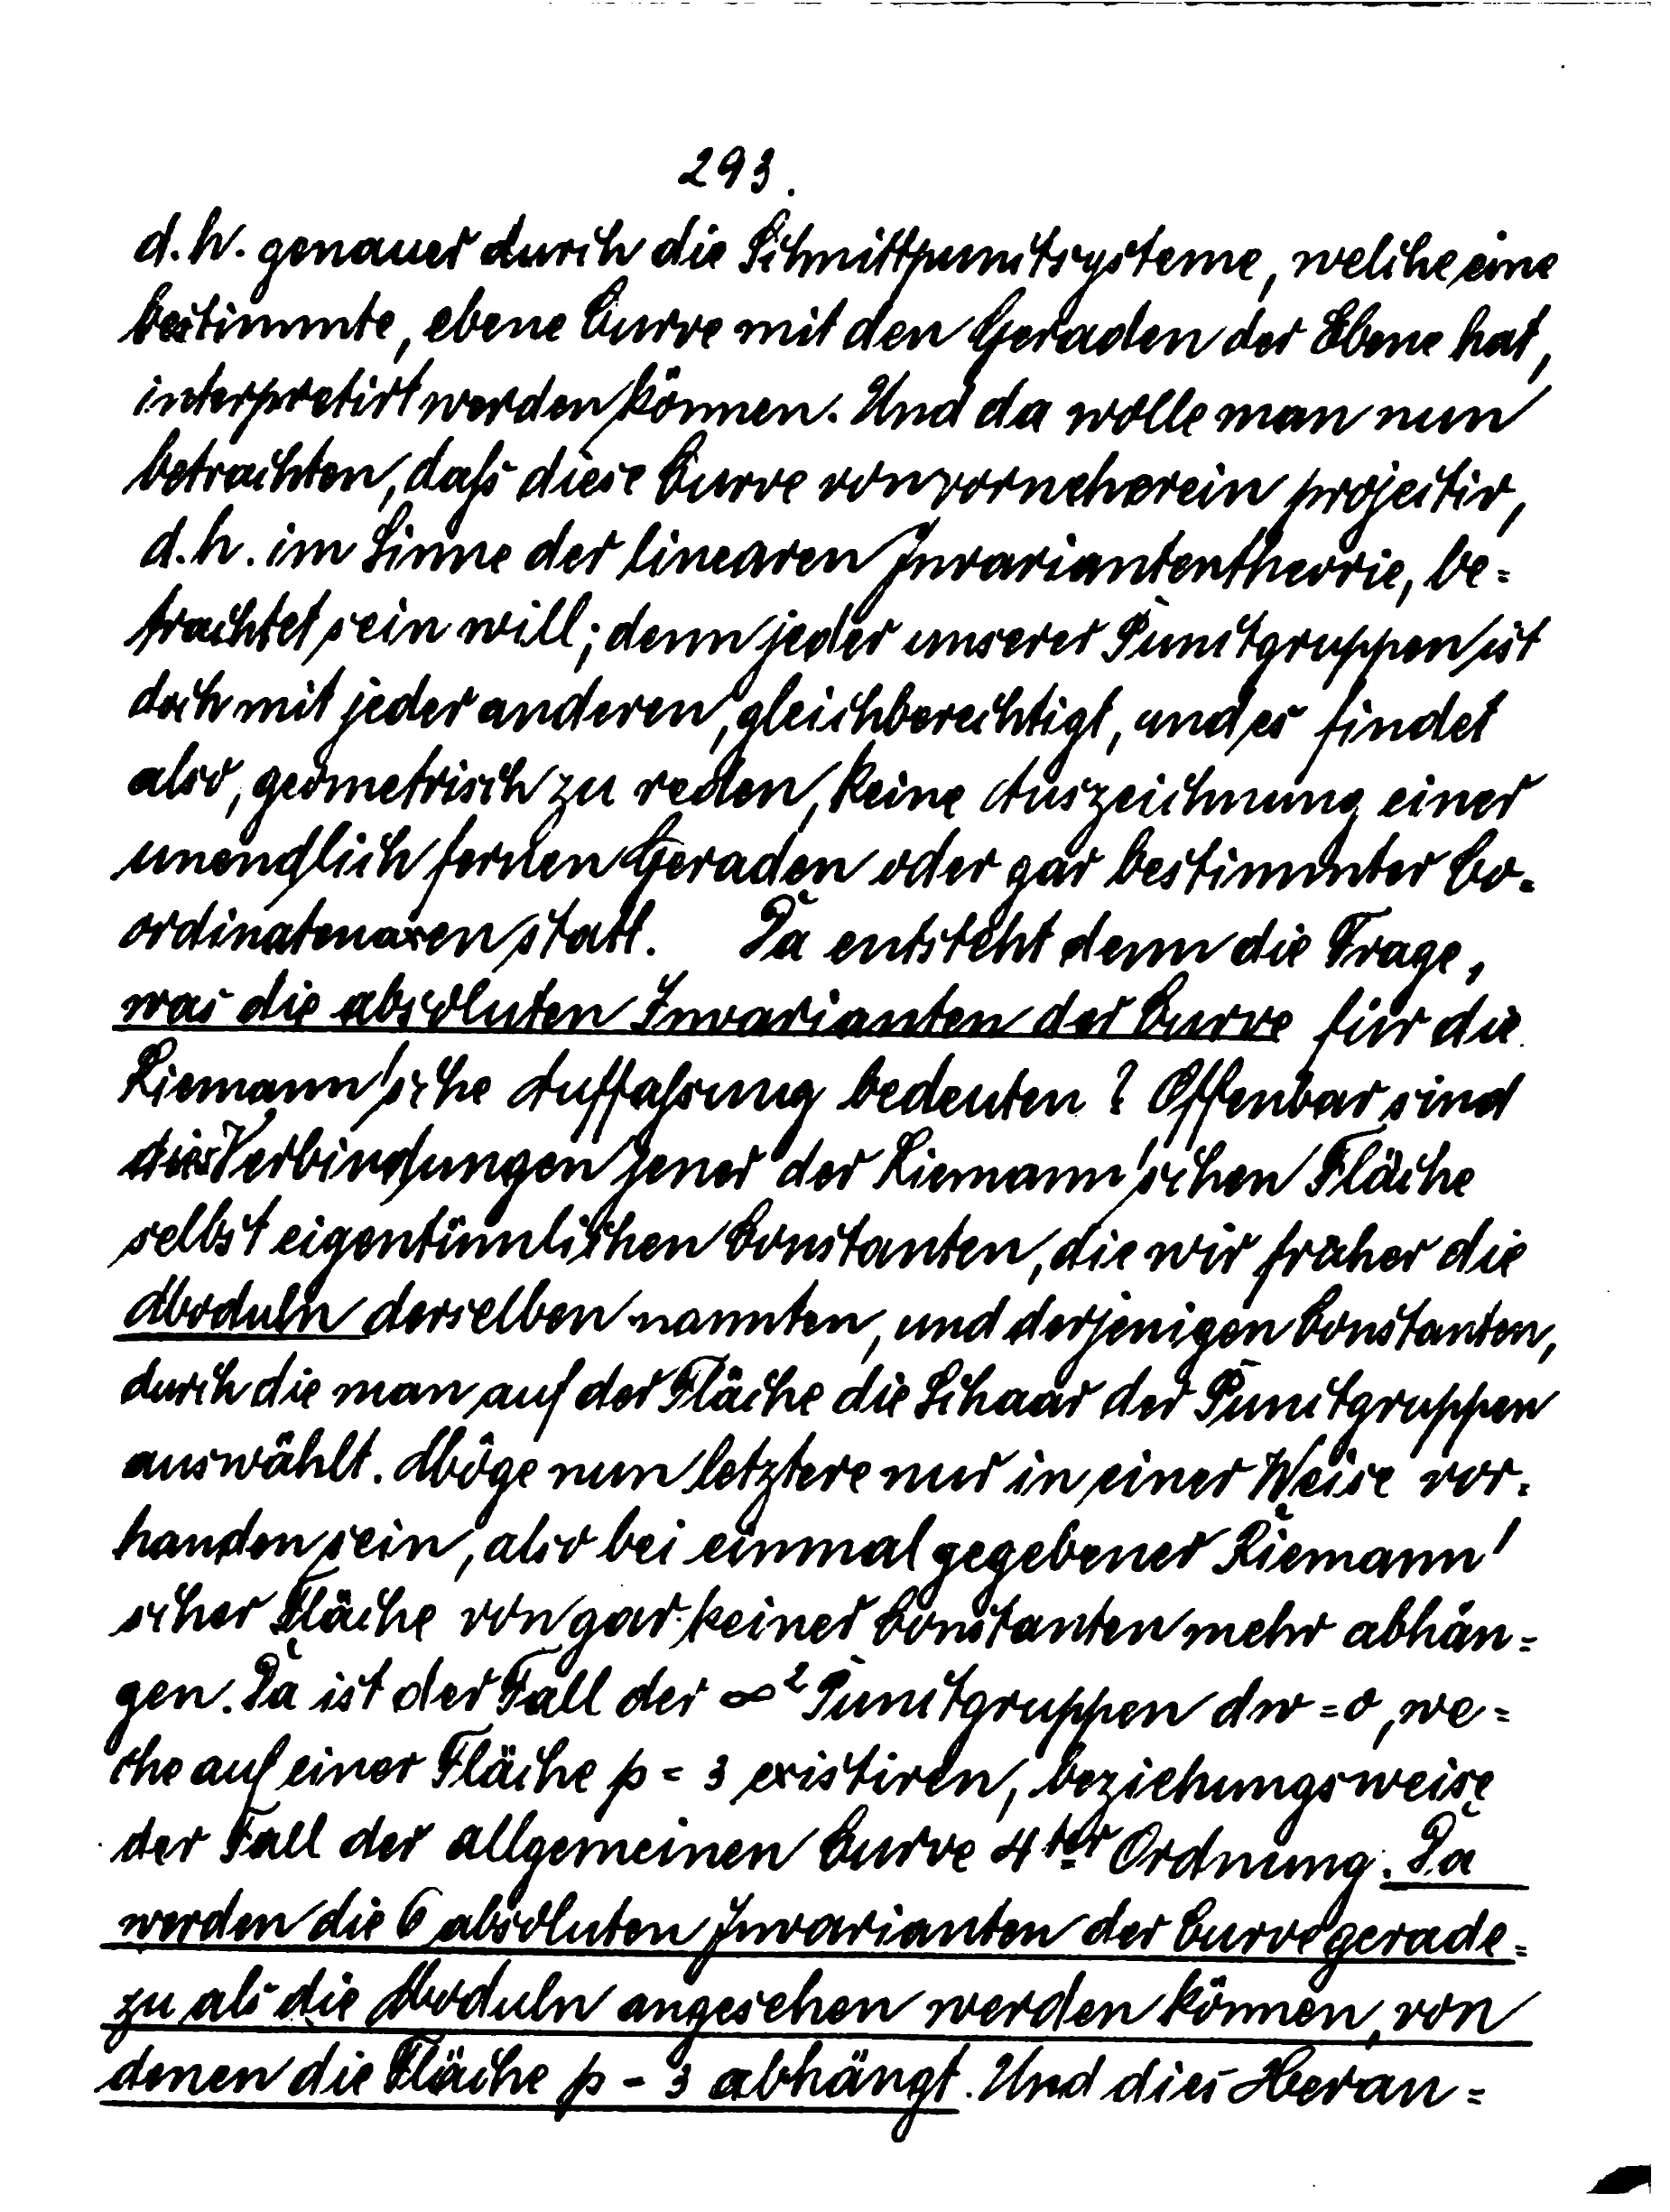 293.
d. h. genauer durch die Schnittpunctsysteme, welche eine
bestimmte, ebene Curve mit den Geraden der Ebene hat,
interpretirt werden können. Und da wolle man nun
betrachten, daſs diese Curve von vorneherein projectiv,
d. h. im Sinne der linearen Invariantentheorie, be-
trachtet sein will; denn jeder unserer Punctgruppen ist
doch mit jeder anderen, gleichberechtigt, und es findet
also, geometrisch zu reden, keine Auszeichnung einer
unendlich fernen Geraden oder gar bestimmter Co-
ordinatenaxen statt. Da entsteht denn die Frage,
was die absoluten Invarianten der Curve für die
Riemann'sche Auffaſsung bedeuten? Offenbar sind
dies Verbindungen jener der Riemann'schen Fläche
selbst eigentümlichen Constanten, die wir früher die
Moduln derselben nannten, und derjenigen Constanten,
durch die man auf der Fläche die Schaar der Punctgruppen
auswählt. Möge nun letztere nur in einer Weise vor-
handen sein, also bei einmal gegebener Riemann'
scher Fläche von gar keiner Constanten mehr abhän-
gen. Da ist der Fall der ∞² Punctgruppen dw = 0, we-
che auf einer Fläche p = 3 existiren, beziehungsweise
der Fall der allgemeinen Curve 4ter Ordnung. Da
werden die 6 absoluten Invarianten der Curve gerade-
zu als die Moduln angesehen werden können, von
denen die Fläche p = 3 abhängt. Und dies Heran-